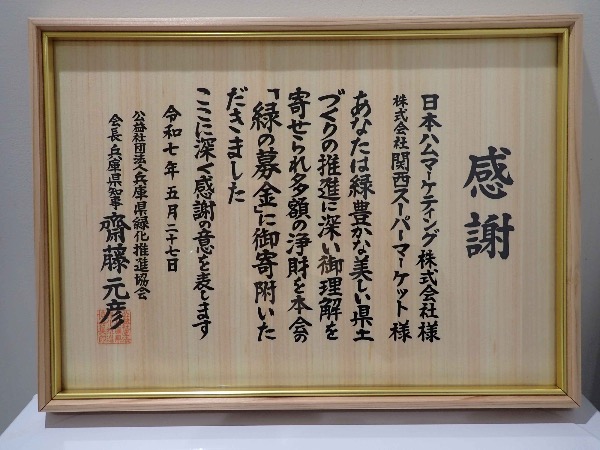 感謝
日本ハムマーケティング株式会社様
株式会社関西スーパーマーケット様
あなたは緑豊かな美しい県土
づくりの推進に深い御理解を
寄せられ多額の浄財を本会の
「緑の募金」に御寄附いた
だきました
ここに深く感謝の意を表します
令和七年五月二十七日
公益社団法人兵庫県緑化推進協会
会長兵庫県知事 齋藤元彦